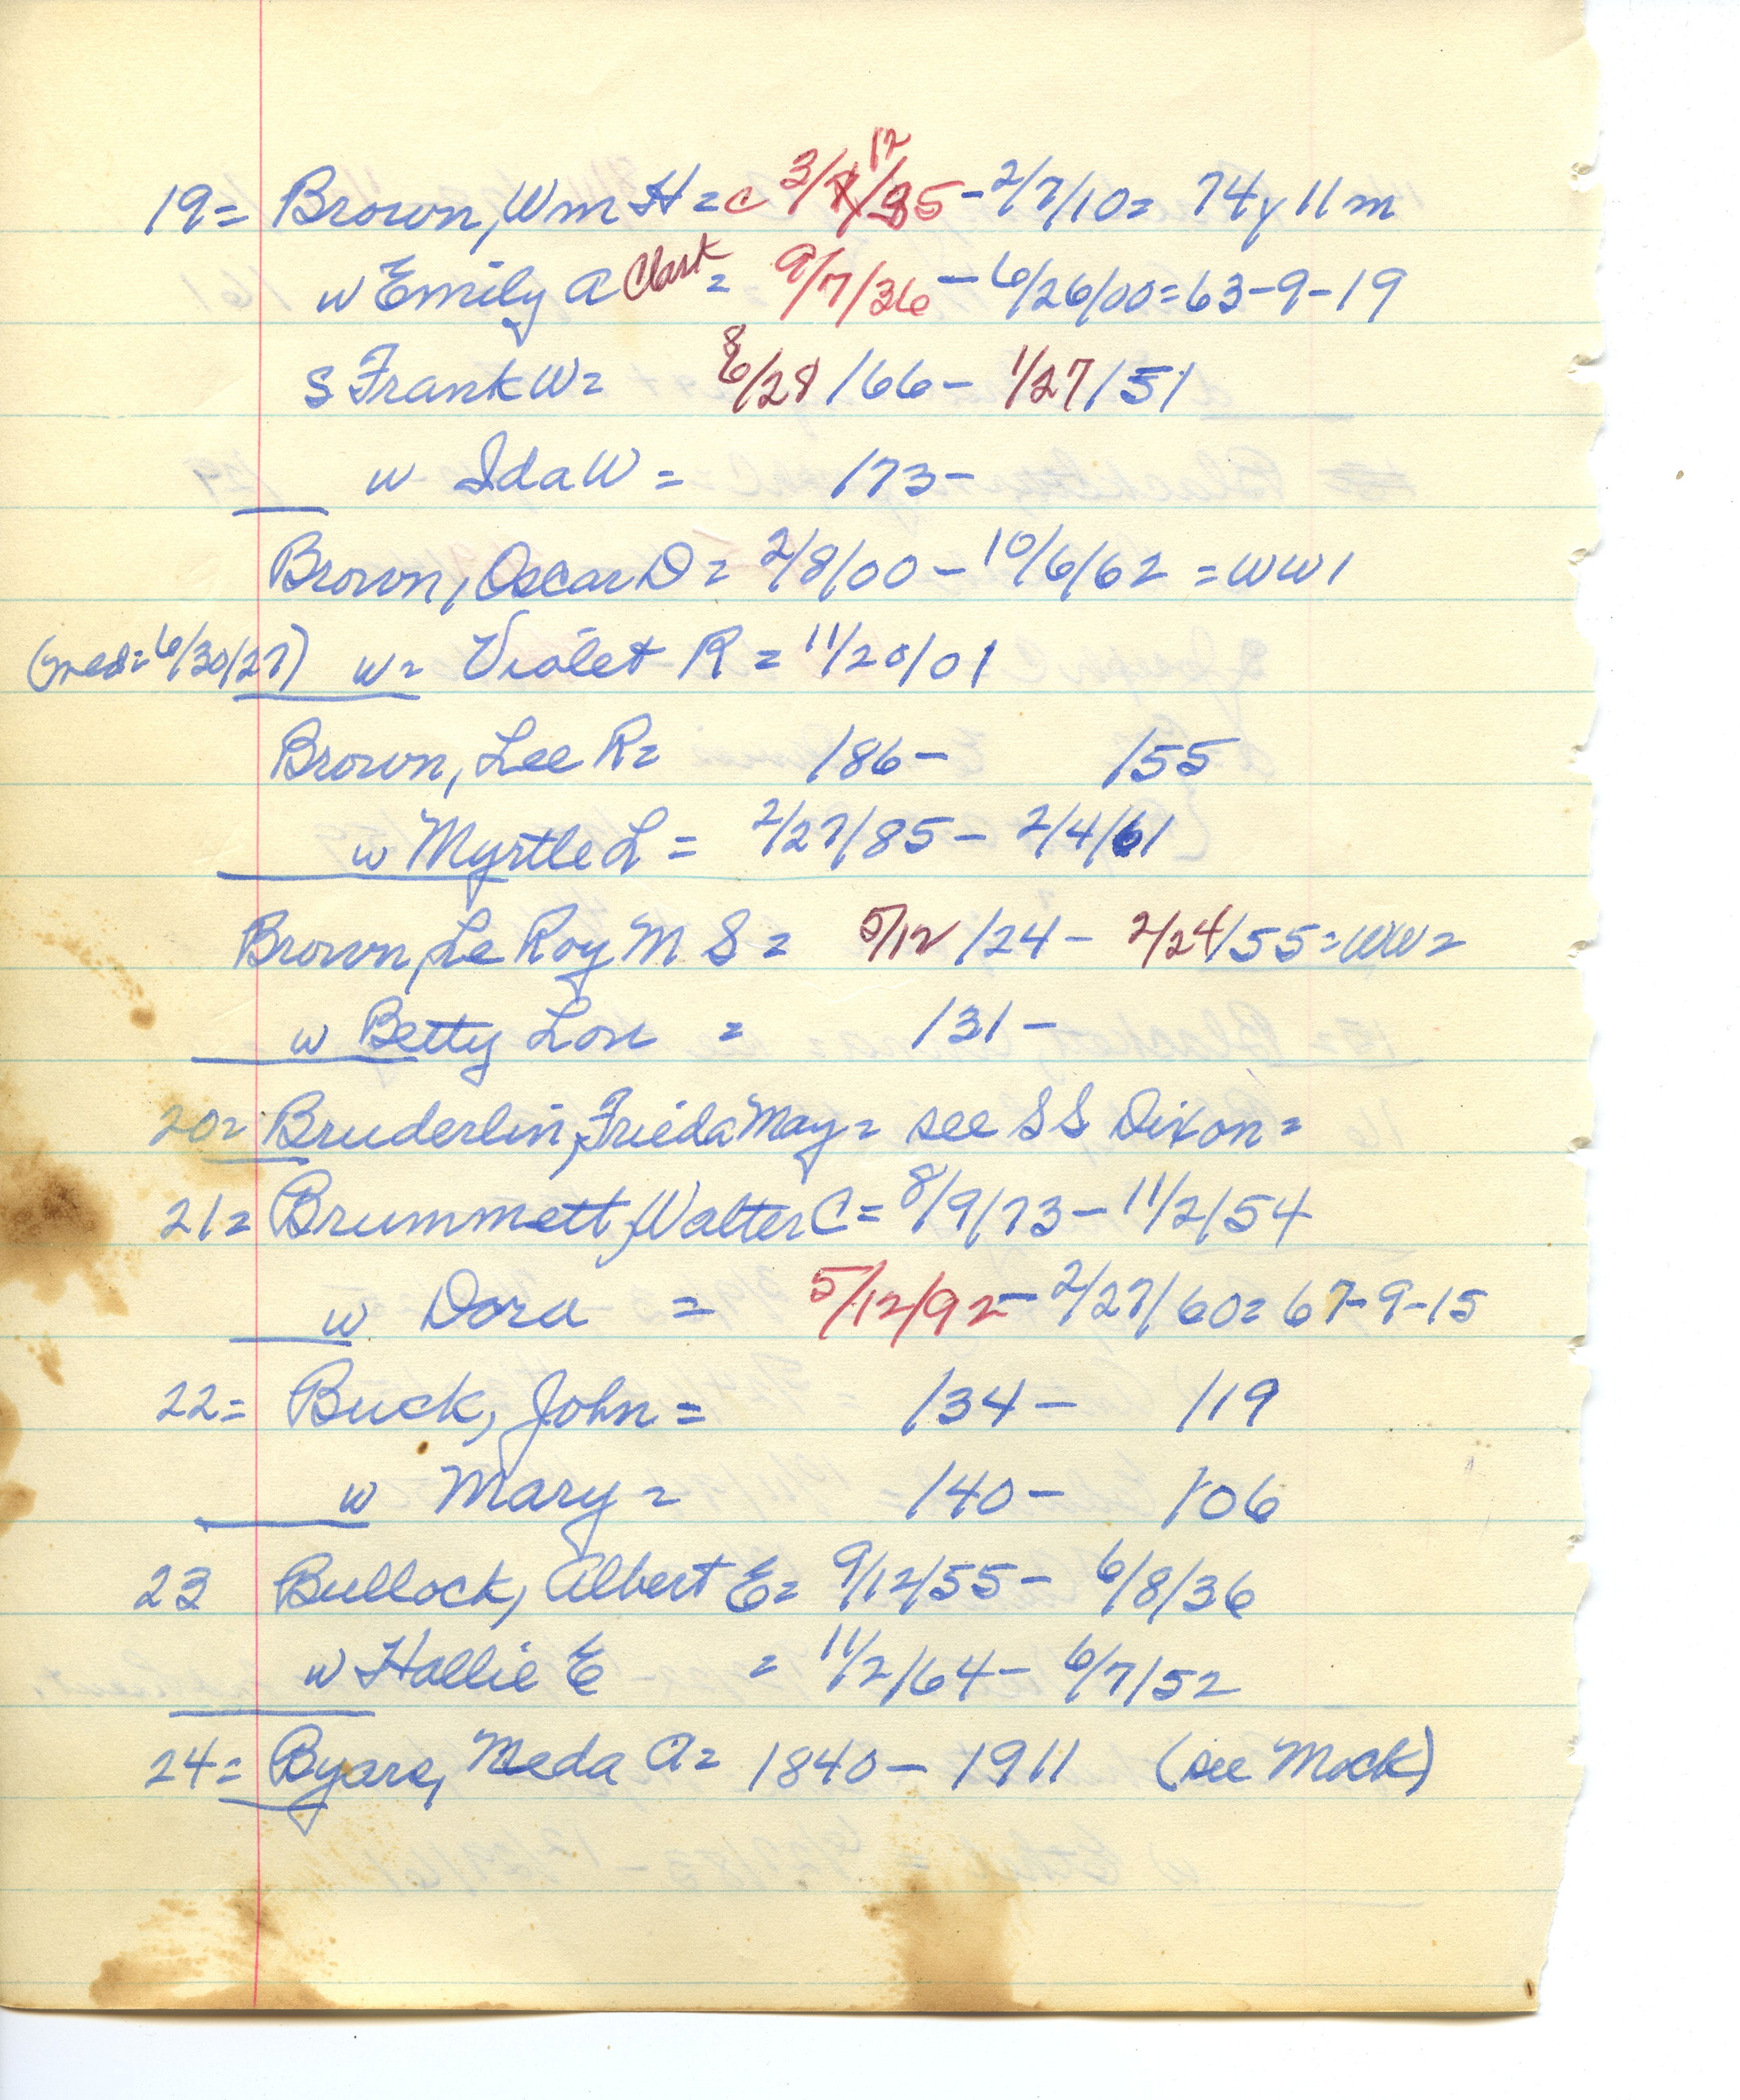 19= Brown, Wm H = c 3/12/35 - 2/7/10 = 74y 11m
w Emily A Clark = 9/7/36 - 6/26/00 = 63-9-19
S Frank W = 8/28/66 - 1/27/51
w Ida W = /73 -
Brown, Oscar D = 2/8/00 - 10/6/62 = WW1
(med = 6/30/27) w = Violet R = 11/20/01
Brown, Lee R = /86 - /55
w Myrtle L = 2/27/85 - 2/4/61
Brown, Le Roy M S = 5/12/24 - 2/24/55 = WW2
w Betty Lou = /31 -
20= Bruderlin, Frieda May = see SS Dixon =
21= Brummett, Walter C = 8/9/73 - 11/2/54
w Dora = 5/12/92 - 2/27/60 = 67-9-15
22= Buck, John = /34 - /19
w Mary = /40 - /06
23 Bullock, Albert E = 9/12/55 - 6/8/36
w Hallie E = 11/2/64 - 6/7/52
24= Byars, Meda A = 1840 - 1911 (see Mock)